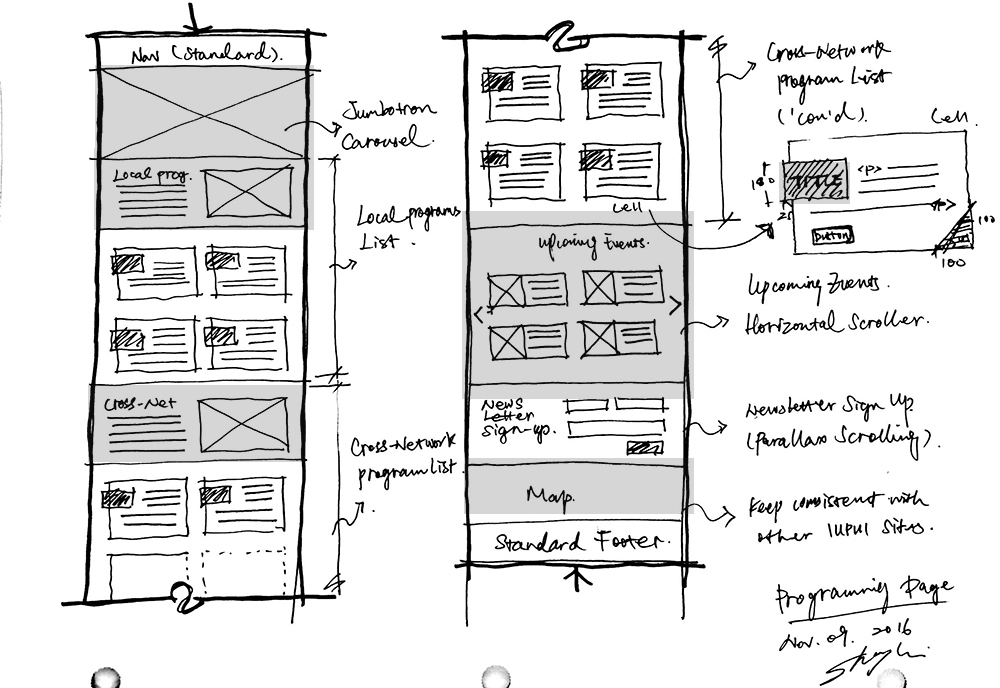 Nav (Standard).
Jumbotron
Carousel.
Local prog.
Local programs
List.
Cross-Net
Cross-Network
program List.
Cross-Network
program List
('con'd).
Cell.
TITLE
<P>
180
25
<P>
Button
100
100
Cell
Upcoming Events.
<
>
Upcoming Events.
Horizontal Scroller.
News
Letter
Sign-up.
Newsletter Sign Up
(Parallax Scrolling).
Map.
Keep consistent with
other IUPUI Sites.
Standard Footer.
Programming Page
Nov. 09. 2016